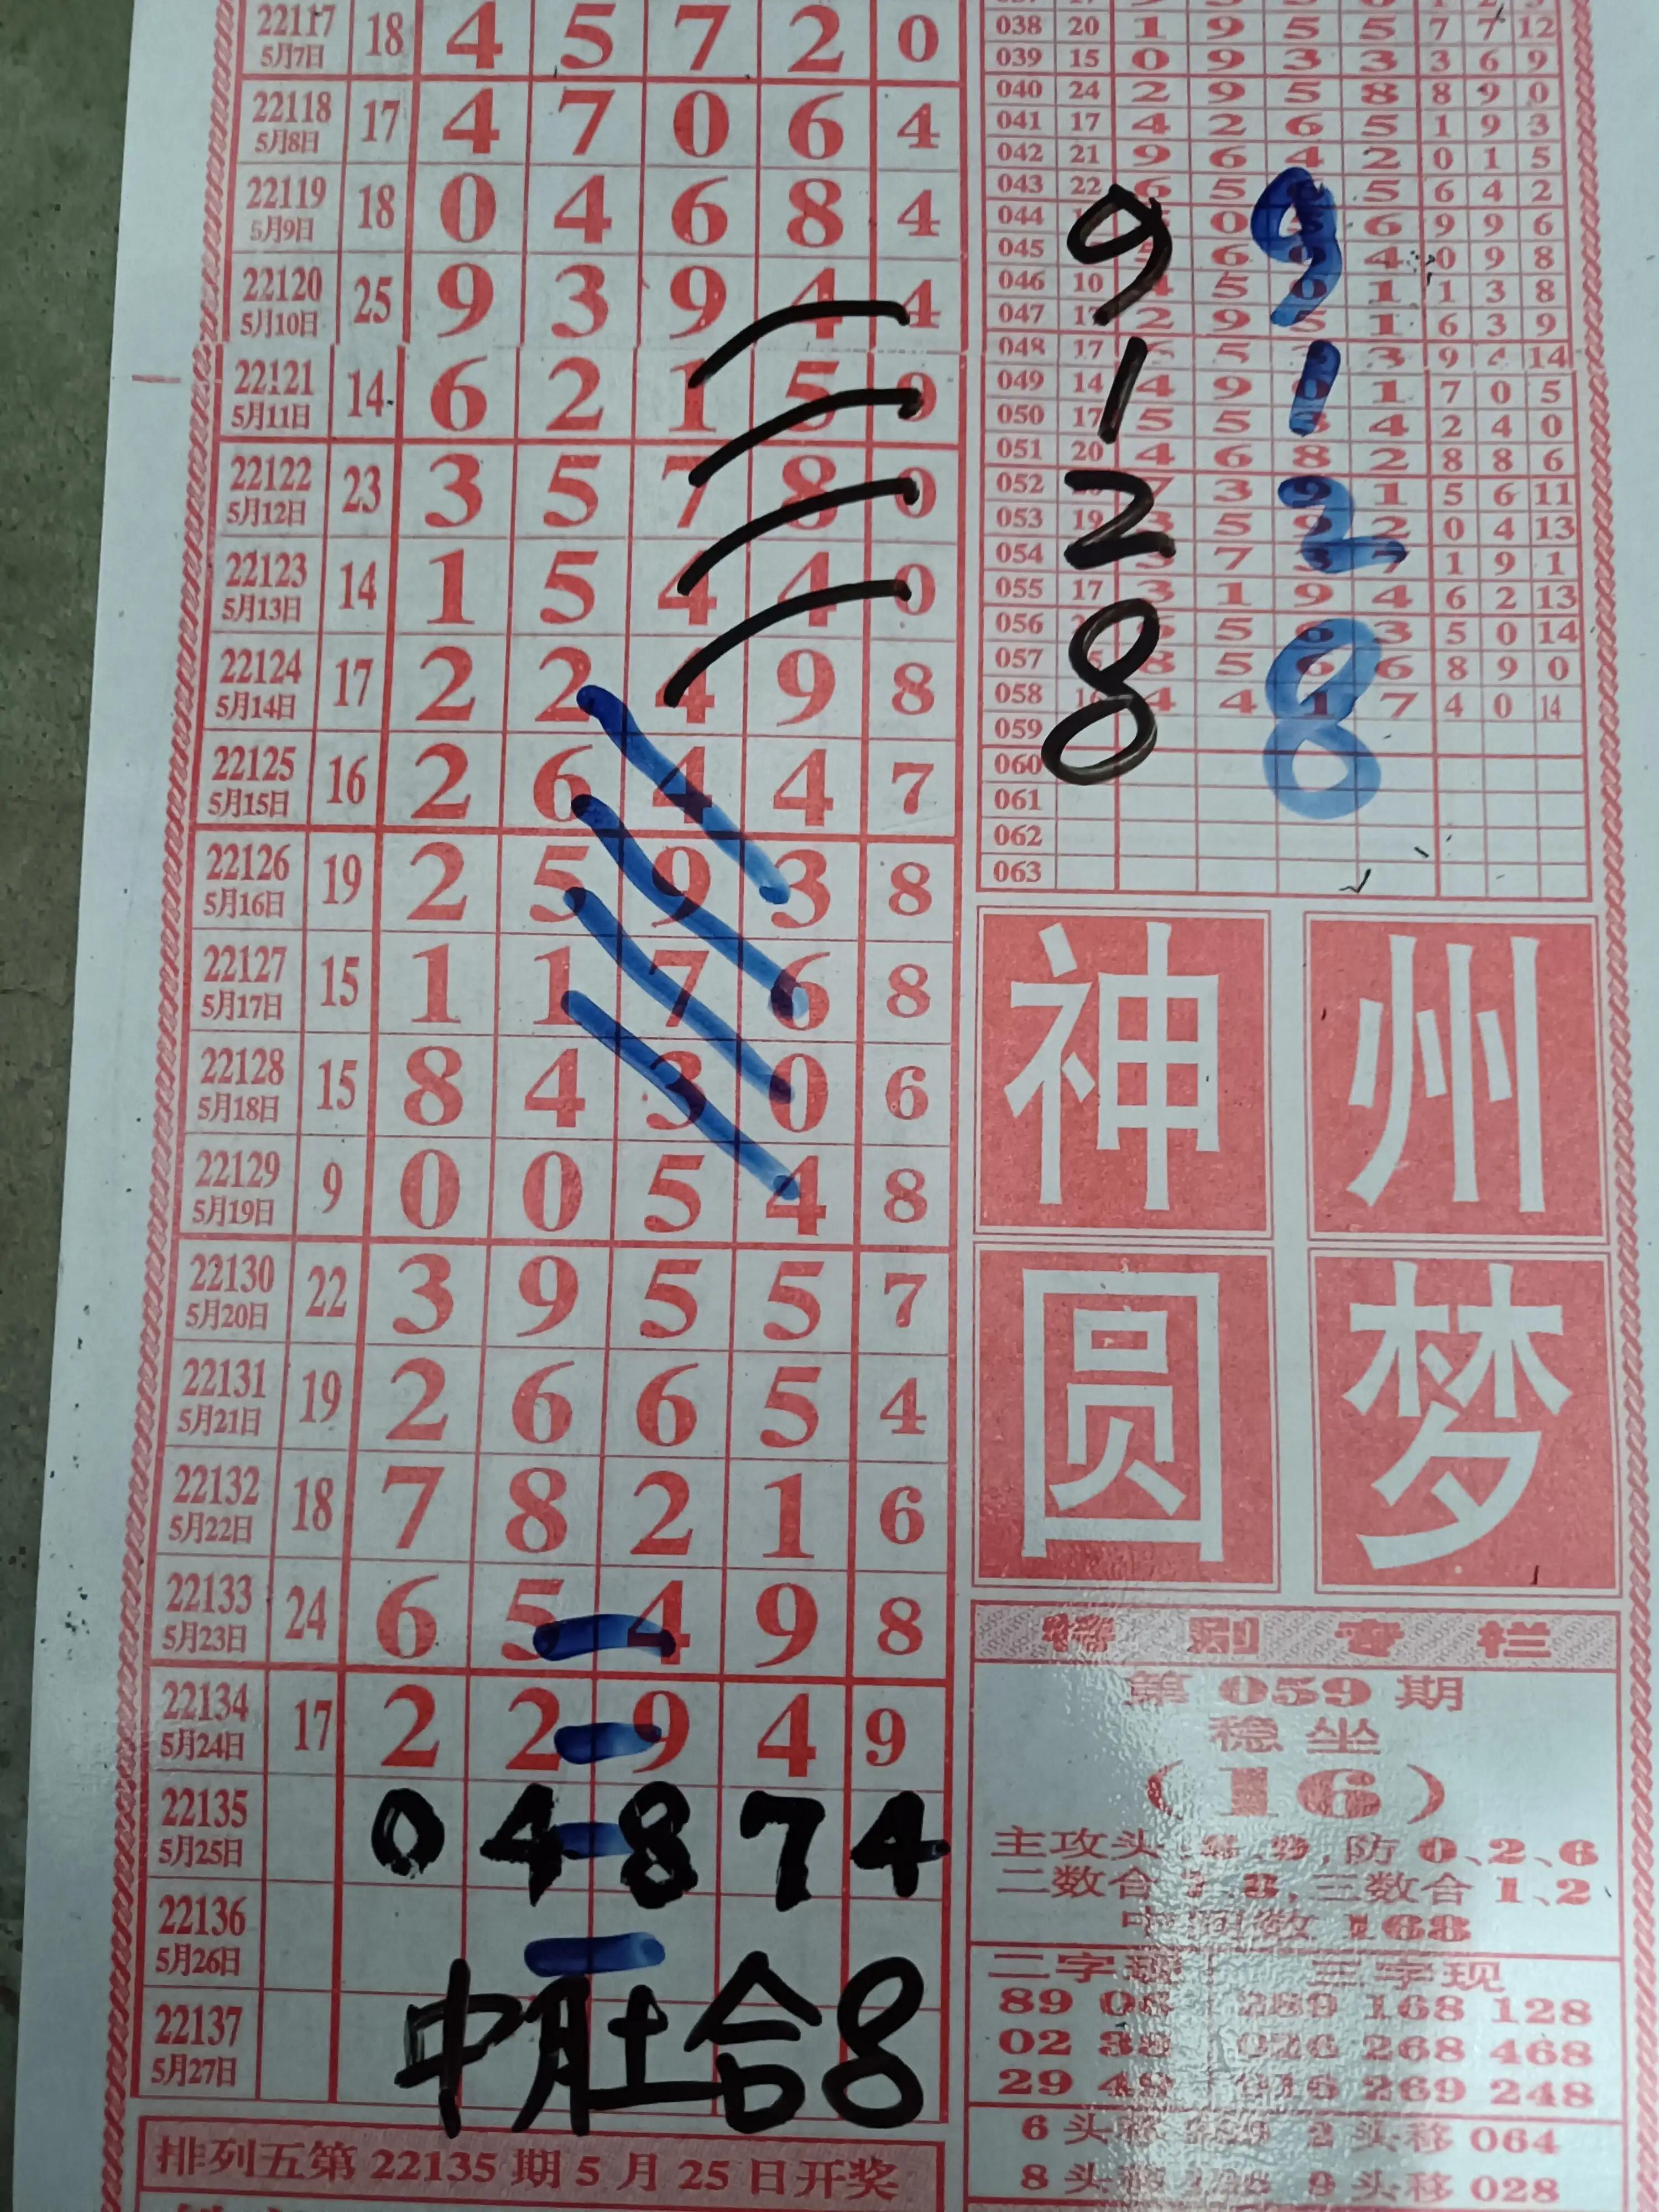 22117 18 4 5 7 2 0
5月7日
22118 17 4 7 0 6 4
5月8日
22119 18 0 4 6 8 4
5月9日
22120 25 9 3 9 4 4
5月10日
22121 14 6 2 1 5 9
5月11日
22122 23 3 5 7 8 0
5月12日
22123 14 1 5 4 4 0
5月13日
22124 17 2 2 4 9 8
5月14日
22125 16 2 6 4 4 7
5月15日
22126 19 2 5 9 3 8
5月16日
22127 15 1 1 7 6 8
5月17日
22128 15 8 4 3 0 6
5月18日
22129 9 0 0 5 4 8
5月19日
22130 22 3 9 5 5 7
5月20日
22131 19 2 6 6 5 4
5月21日
22132 18 7 8 2 1 6
5月22日
22133 24 6 5 4 9 8
5月23日
22134 17 2 2 9 4 9
5月24日
22135 0 4 8 7 4
5月25日
22136
5月26日
22137
5月27日
中肚合8
排列五第 22135 期 5 月 25 日开奖
038 20 1 9 5 5 7 7 12
039 15 0 9 3 3 3 6 9
040 24 2 9 5 8 8 9 0
041 17 4 2 6 5 1 9 3
042 21 9 6 4 2 0 1 5
043 22 6 5 5 6 4 2
044 0 6 9 9 6
045 6 4 0 9 8
046 10 4 5 1 1 3 8
047 2 9 5 1 6 3 9
048 17 5 3 9 14
049 14 4 9 1 7 0 5
050 17 5 5 4 2 4 0
051 20 4 6 8 2 8 8 6
052 7 3 9 1 5 6 11
053 19 3 5 9 2 0 4 13
054 3 7 7 1 9 1
055 17 3 1 9 4 6 2 13
056 5 6 3 5 0 14
057 8 5 6 6 8 9 0
058 16 4 4 1 7 4 0 14
059
060
061
062
063
9 9
1 1
2 2
8 8
神 州
圆 梦
特 别 专 栏
第 059 期
稳 坐
(16)
主攻头 9,防 0、2、6
二数合 8,三数合 1、2
中 数 168
二字现 三字现
89 06 289 168 128
02 38 026 268 468
29 48 269 248
6 头移 2 头移 064
8 头移 9 头移 028